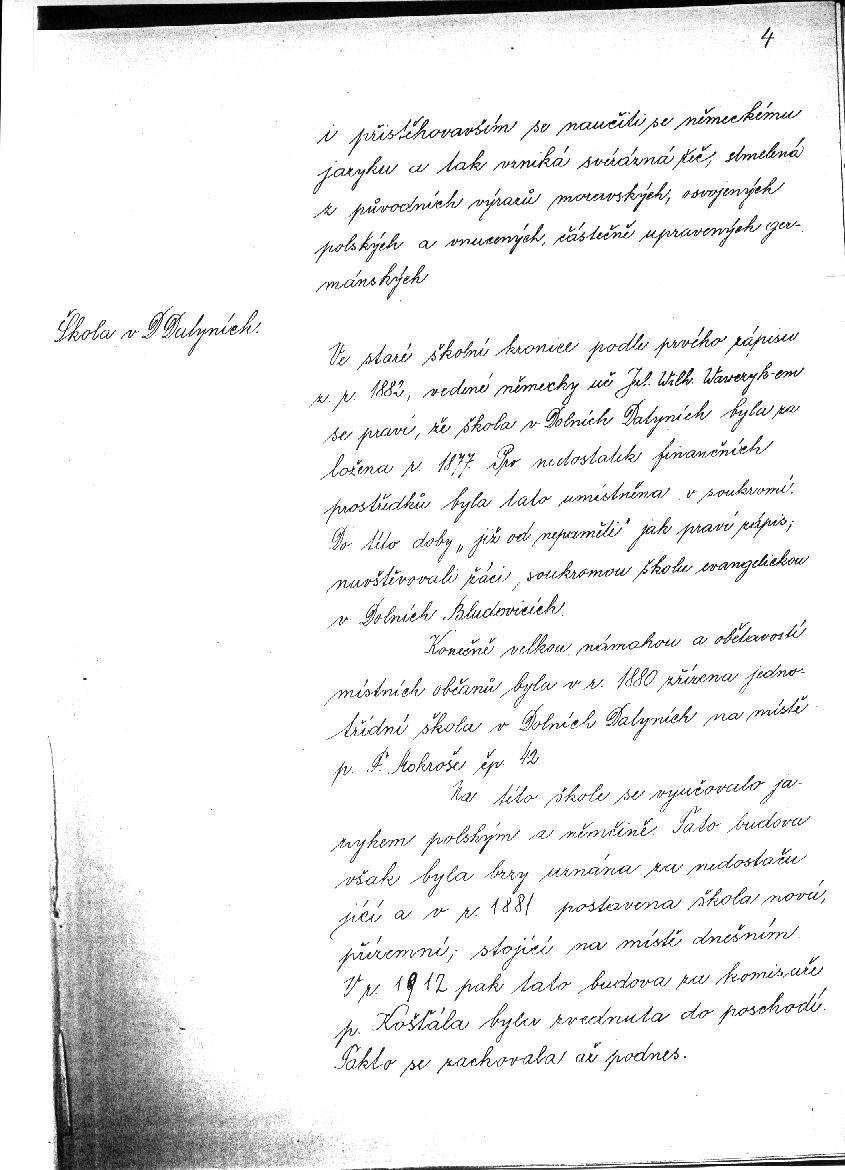 4
i přistěhovavším se naučiti se německému
jazyku a tak vzniká svérázná řeč, stmelená
z původních výrazů moravských, osvojených
polských a vnucených, částečně upravených ger-
mánských
Škola v D Datyních.
Ve staré školní kronice podle prvého zápisu
z r. 1882, vedené německy uč Jul. Wilh. Waweryk-em
se praví, že škola v Dolních Datyních byla za
ložena r. 1877. Pro nedostatek finančních
prostředků byla tato umístněna v soukromí.
Do této doby „již od nepaměti" jak praví zápis,
navštěvovali žáci, soukromou školu evangelickou
v Dolních Bludovicích.
Konečně velkou námahou a obětavostí
místních občanů byla v r. 1880 zřízena jedno-
třídní škola v Dolních Datyních na místě
p. F. Mokroše čp. 42
Na této škole se vyučovalo ja-
zykem polským a němčině. Tato budova
však byla brzy uznána za nedostaču
jící a v r. 1881 postavena škola nová,
přízemní, stojící na místě dnešním.
V r. 1912 pak tato budova za komisaře
p. Košťála byla zvednuta do poschodí.
Takto se zachovala až podnes.